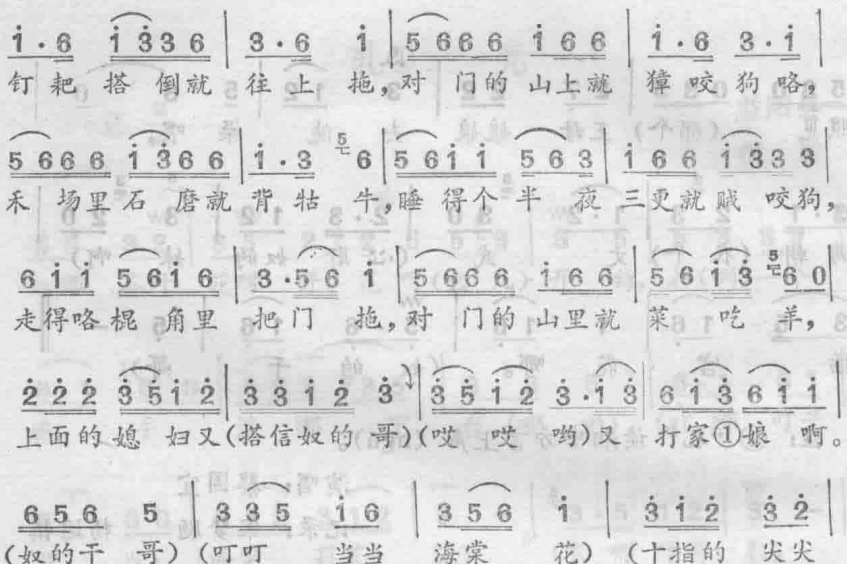 i·6 i336 | 3·6 i | 5666 i66 | i·6 3·i |
钉耙 搭 倒就 往上 拖,对 门的 山上就 獐咬狗咯,
5666 i366 | i·3 5 6 | 56ii 563 | i66 i333 |
禾 场里石 磨就 背牯 牛,睡得个半 夜 三更就贼 咬狗,
6ii 56i6 | 3·56 i | 5666 i66 | 56i3 5 60 |
走得咯棍 角里 把门 拖,对 门的山里就 菜 吃 羊,
222 35i2 | 33i2 3 | 35i2 3·i3 | 6i36ii |
上面的媳 妇又(搭信奴的 哥)(哎 哎 哟)又 打家①娘 啊。
656 5 | 335 i6 | 356 i | 3i2 32
(奴的干 哥)(叮叮 当当 海棠 花) (十指的 尖尖